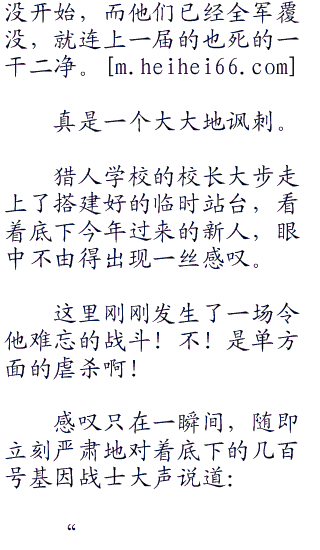 没开始，而他们已经全军覆
没，就连上一届的也死的一
干二净。[m.heihei66.com]
真是一个大大地讽刺。
猎人学校的校长大步走
上了搭建好的临时站台，看
着底下今年过来的新人，眼
中不由得出现一丝感叹。
这里刚刚发生了一场令
他难忘的战斗！不！是单方
面的虐杀啊！
感叹只在一瞬间，随即
立刻严肃地对着底下的几百
号基因战士大声说道：
“